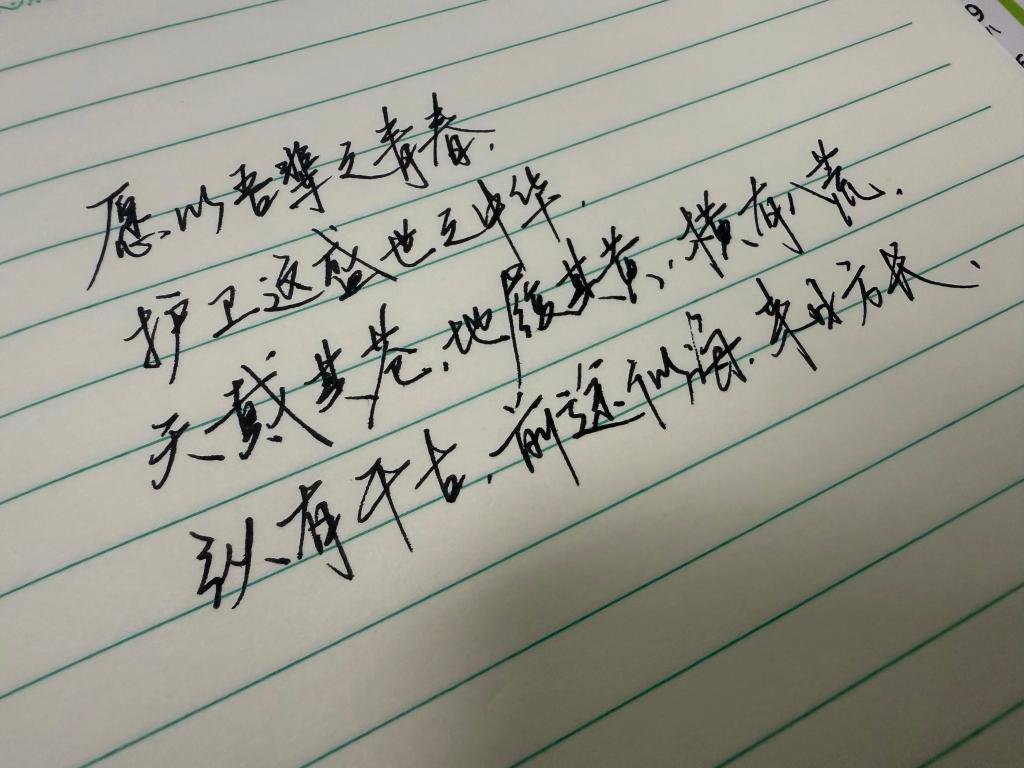 愿以吾辈之青春.
护卫这盛世之中华.
天戴其苍.地履其黄.横有八荒.
纵有千古.前途似海.来日方长.
9